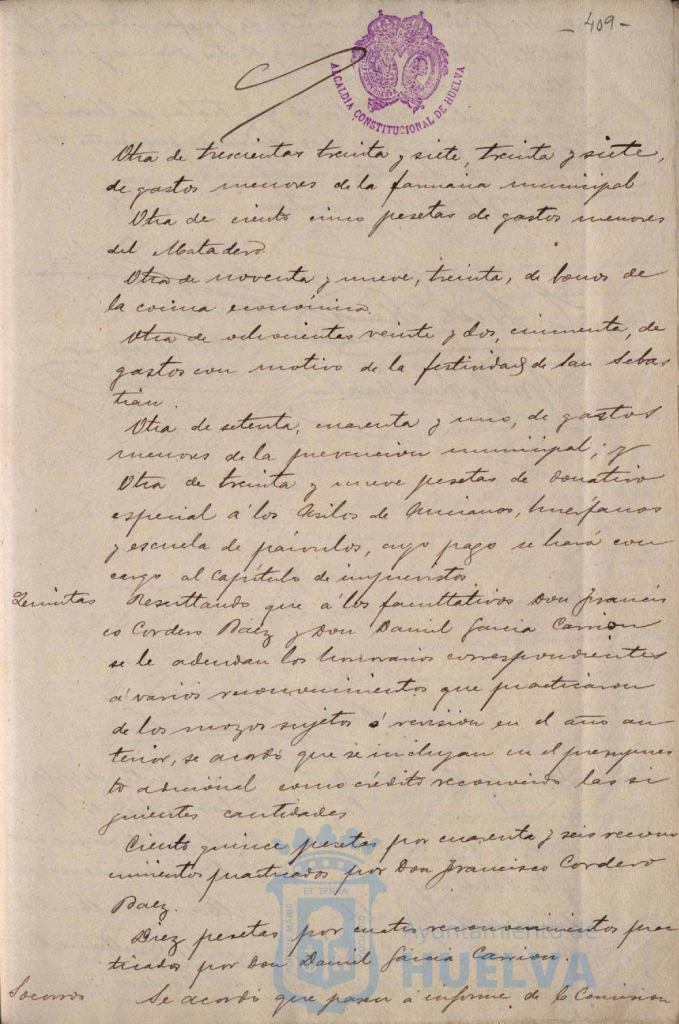 - 409 -
ALCALDIA CONSTITUCIONAL DE HUELVA
Otra de trescientas treinta y siete, treinta y siete,
de gastos menores de la farmacia municipal
Otra de ciento cinco pesetas de gastos menores
del Matadero.
Otra de noventa y nueve, treinta, de bonos de
la cocina económica.
Otra de ochocientas veinte y dos, cincuenta, de
gastos con motivo de la festividad de San Sebas
tián.
Otra de setenta, cuarenta y uno, de gastos
menores de la prevencion municipal; y
Otra de treinta y nueve pesetas de donativo
especial á los Asilos de Ancianos, huérfanos
y escuela de párvulos, cuyo pago se hará con
cargo al Capítulo de imprevistos
Resultando que á los facultativos Don Francis
co Cordero Baez y Don Daniel Garcia Carrion
se le adeudan los honorarios correspondientes
á varios reconocimientos que practicaron
de los mozos sujetos á revisión en el año an
terior, se acordó que se incluyan en el presupues
to adicional como crédito reconocido las si
guientes cantidades
Ciento quince pesetas por cuarenta y seis recono
cimientos practicados por Don Francisco Cordero
Baez.
Diez pesetas por cuatro reconocimientos prac
ticados por Don Daniel Garcia Carrion.
Socorros
Se acordó que pasen á informe de la Comision
Ayuntamiento de
HUELVA